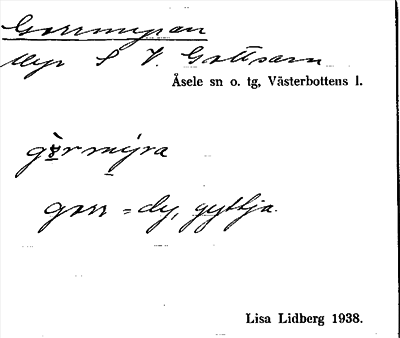 Gorrmyran
Myr S V. Gottsarn
Åsele sn o. tg, Västerbottens l.
gòrmýra
gorr = dy, gyttja.
Lisa Lidberg 1938.